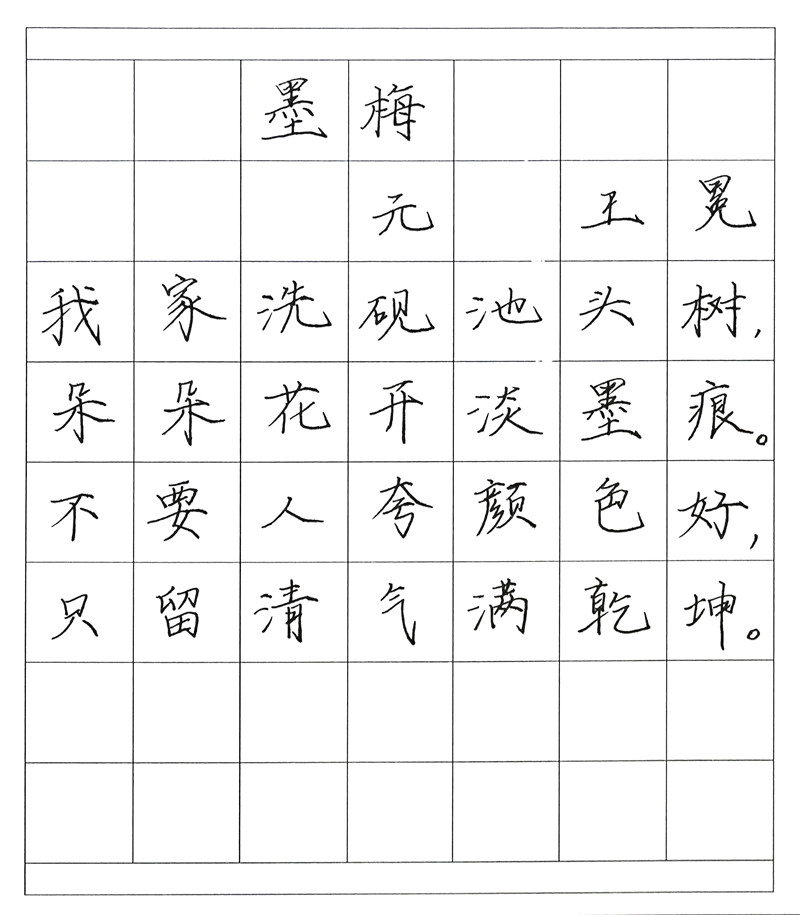 墨梅
元 王冕
我家洗砚池头树,
朵朵花开淡墨痕。
不要人夸颜色好,
只留清气满乾坤。